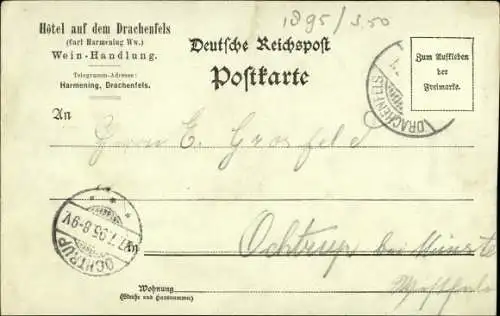 1895/3.50
Hôtel auf dem Drachenfels
(Carl Harmening Ww.)
Wein-Handlung.
Telegramm-Adresse:
Harmening, Drachenfels.
Deutsche Reichspost
Postkarte
Zum Aufkleben
der
Freimarke.
DRACHENFELS
An
Herrn E. Grosfeld
OCHTRUP
27.7.95.8-9V.
in
Ochtrup bei Münster
Westfalen
Wohnung
(Straße und Hausnummer)